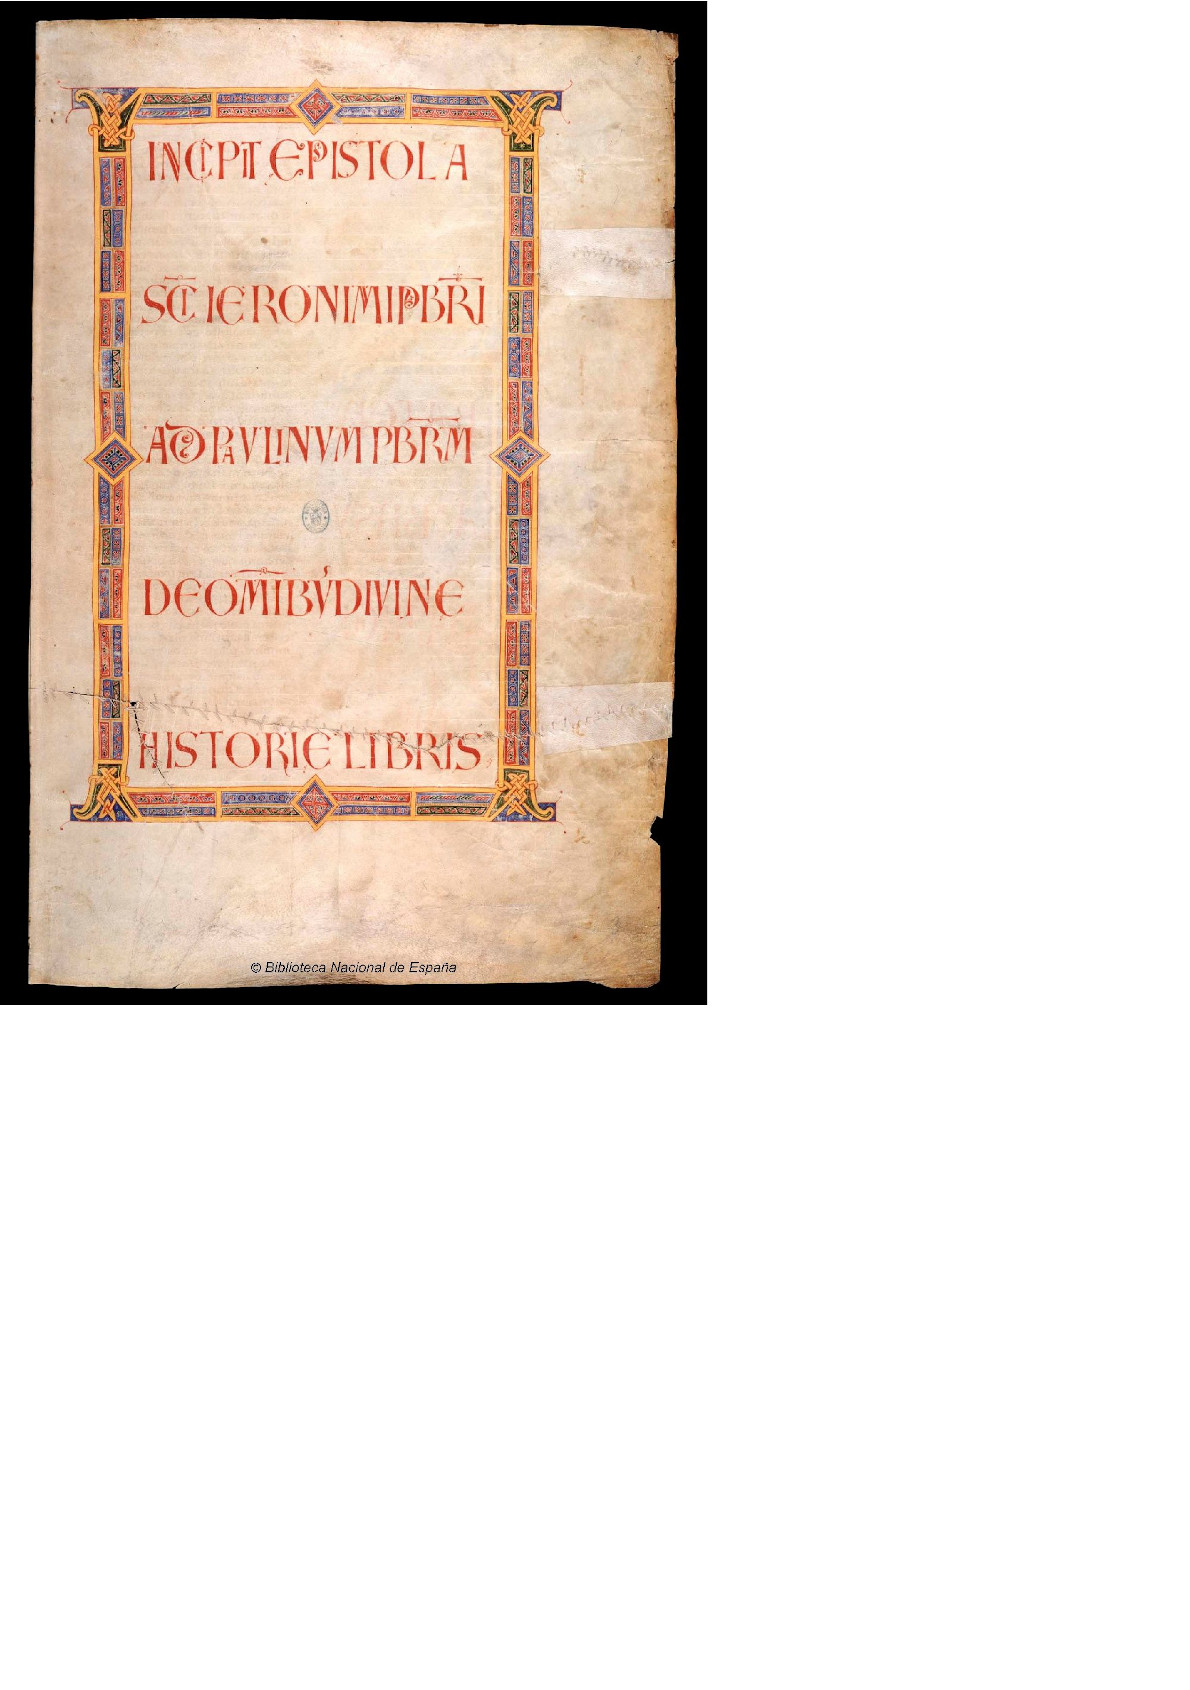 INCIPIT EPISTOLA
SC̅I IERONIMI PB̅RI
AD PAVLINVM PB̅RM
DE OM̅IBVꝰ DIVINE
HISTORIE LIBRIS
© Biblioteca Nacional de España